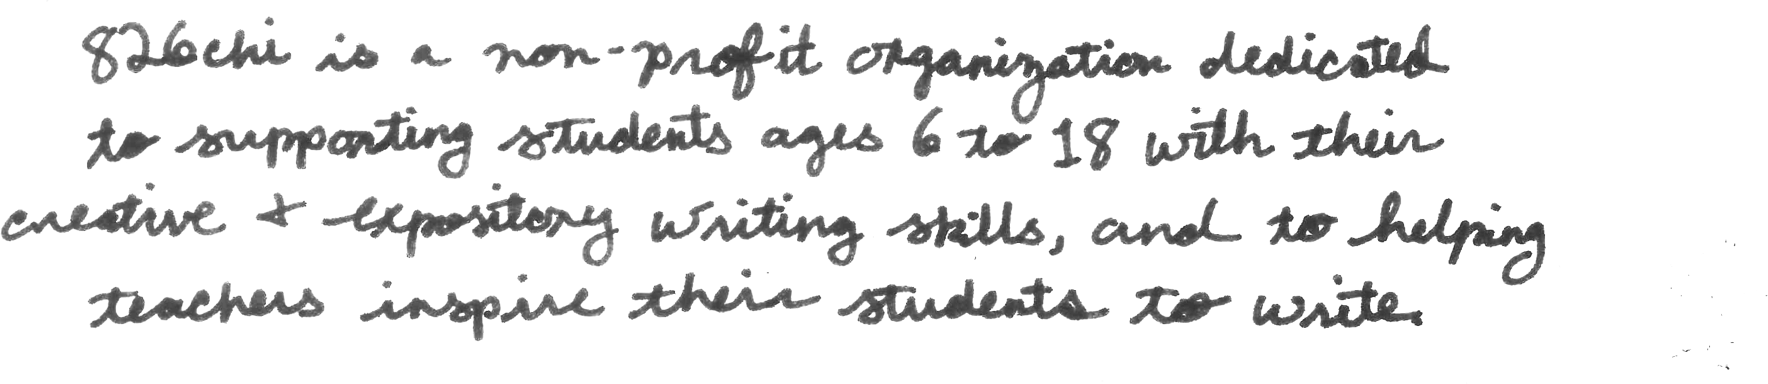 826chi is a non-profit organization dedicated
to supporting students ages 6 to 18 with their
creative & expository writing skills, and to helping
teachers inspire their students to write.